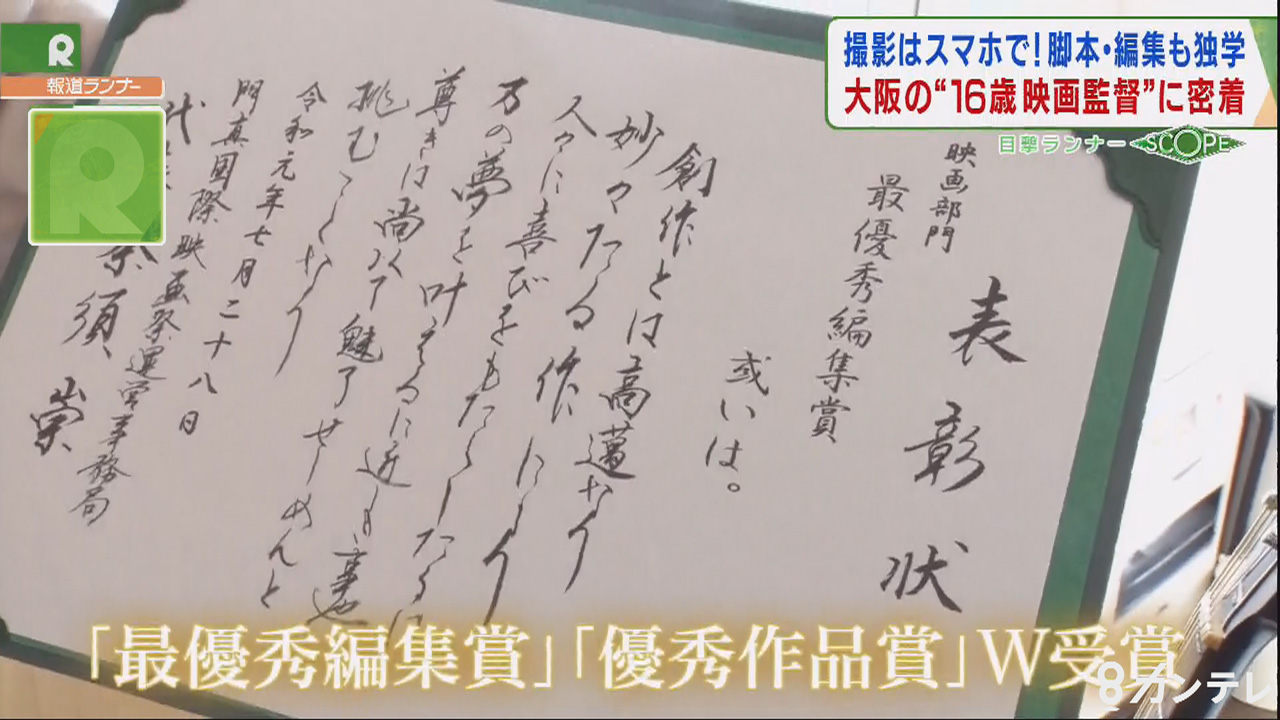 報道ランナー
撮影はスマホで!脚本・編集も独学
大阪の“16歳映画監督”に密着
目撃ランナー SCOPE
表彰状
映画部門
最優秀編集賞
或いは。
創作とは高邁なり
妙々たる作により
人々に喜びをもたらしたるは
万の夢を叶えるに近 事也
尊きは尚以て魅了せしめんと
挑むことなり
令和元年七月二十八日
門真國際映画祭運営事務局
代 須 崇
「最優秀編集賞」「優秀作品賞」W受賞
8カンテレ